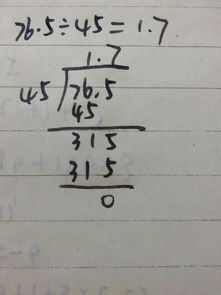 76.5÷45=1.7
1.7
45 76.5
45
315
315
0